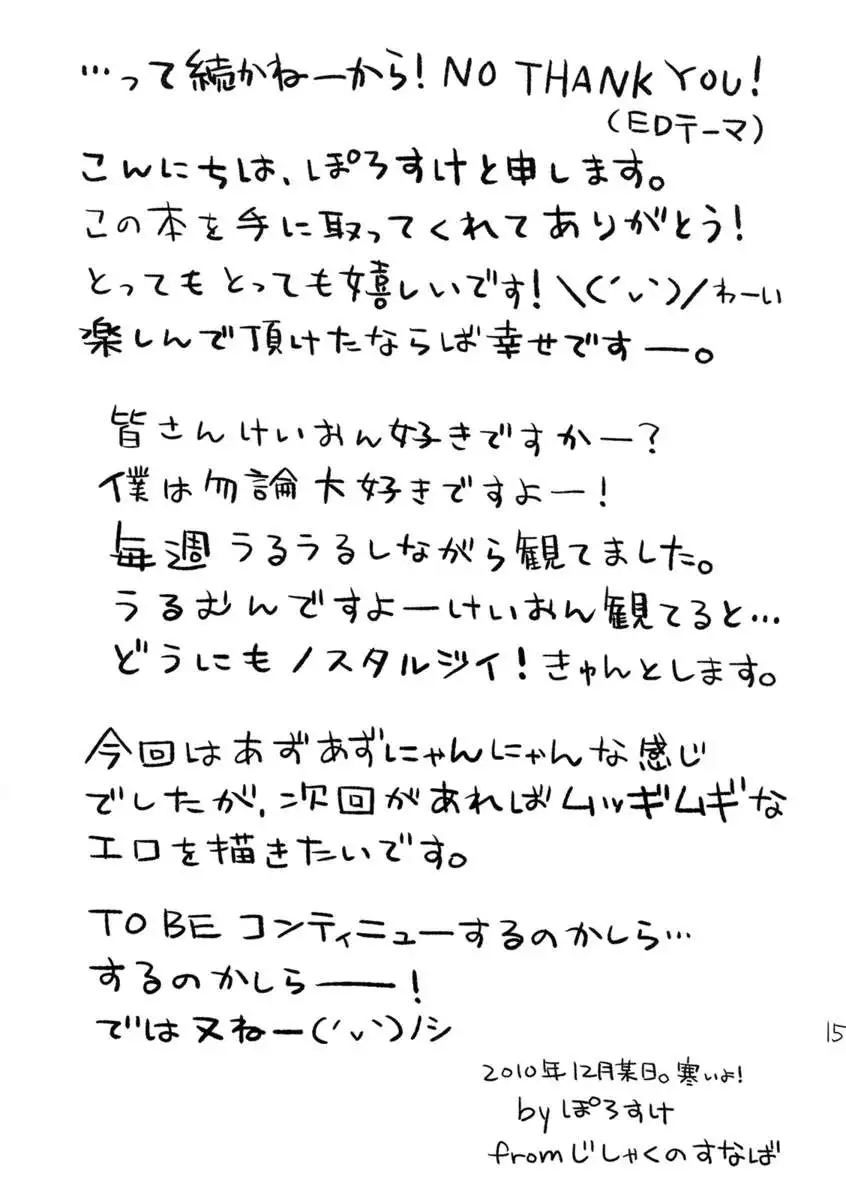 …って続かねーから！NO THANK YOU！
（EDテーマ）
こんにちは、ぽろすけと申します。
この本を手に取ってくれてありがとう！
とってもとっても嬉しいです！＼(´ヽ｀)／わーい
楽しんで頂けたならば幸せですー。
皆さんけいおん好きですかー？
僕は勿論大好きですよー！
毎週うるうるしながら観てました。
うるむんですよーけいおん観てると…
どうにもノスタルジイ！きゅんとします。
今回はあずあずにゃんにゃんな感じ
でしたが、次回があればムッギムギな
エロを描きたいです。
TO BE コンティニューするのかしら…
するのかしらー！
では又ねー(´ヽ｀)ノシ
15
2010年12月某日。寒いよ！
by ぽろすけ
from じしゃくのすなば